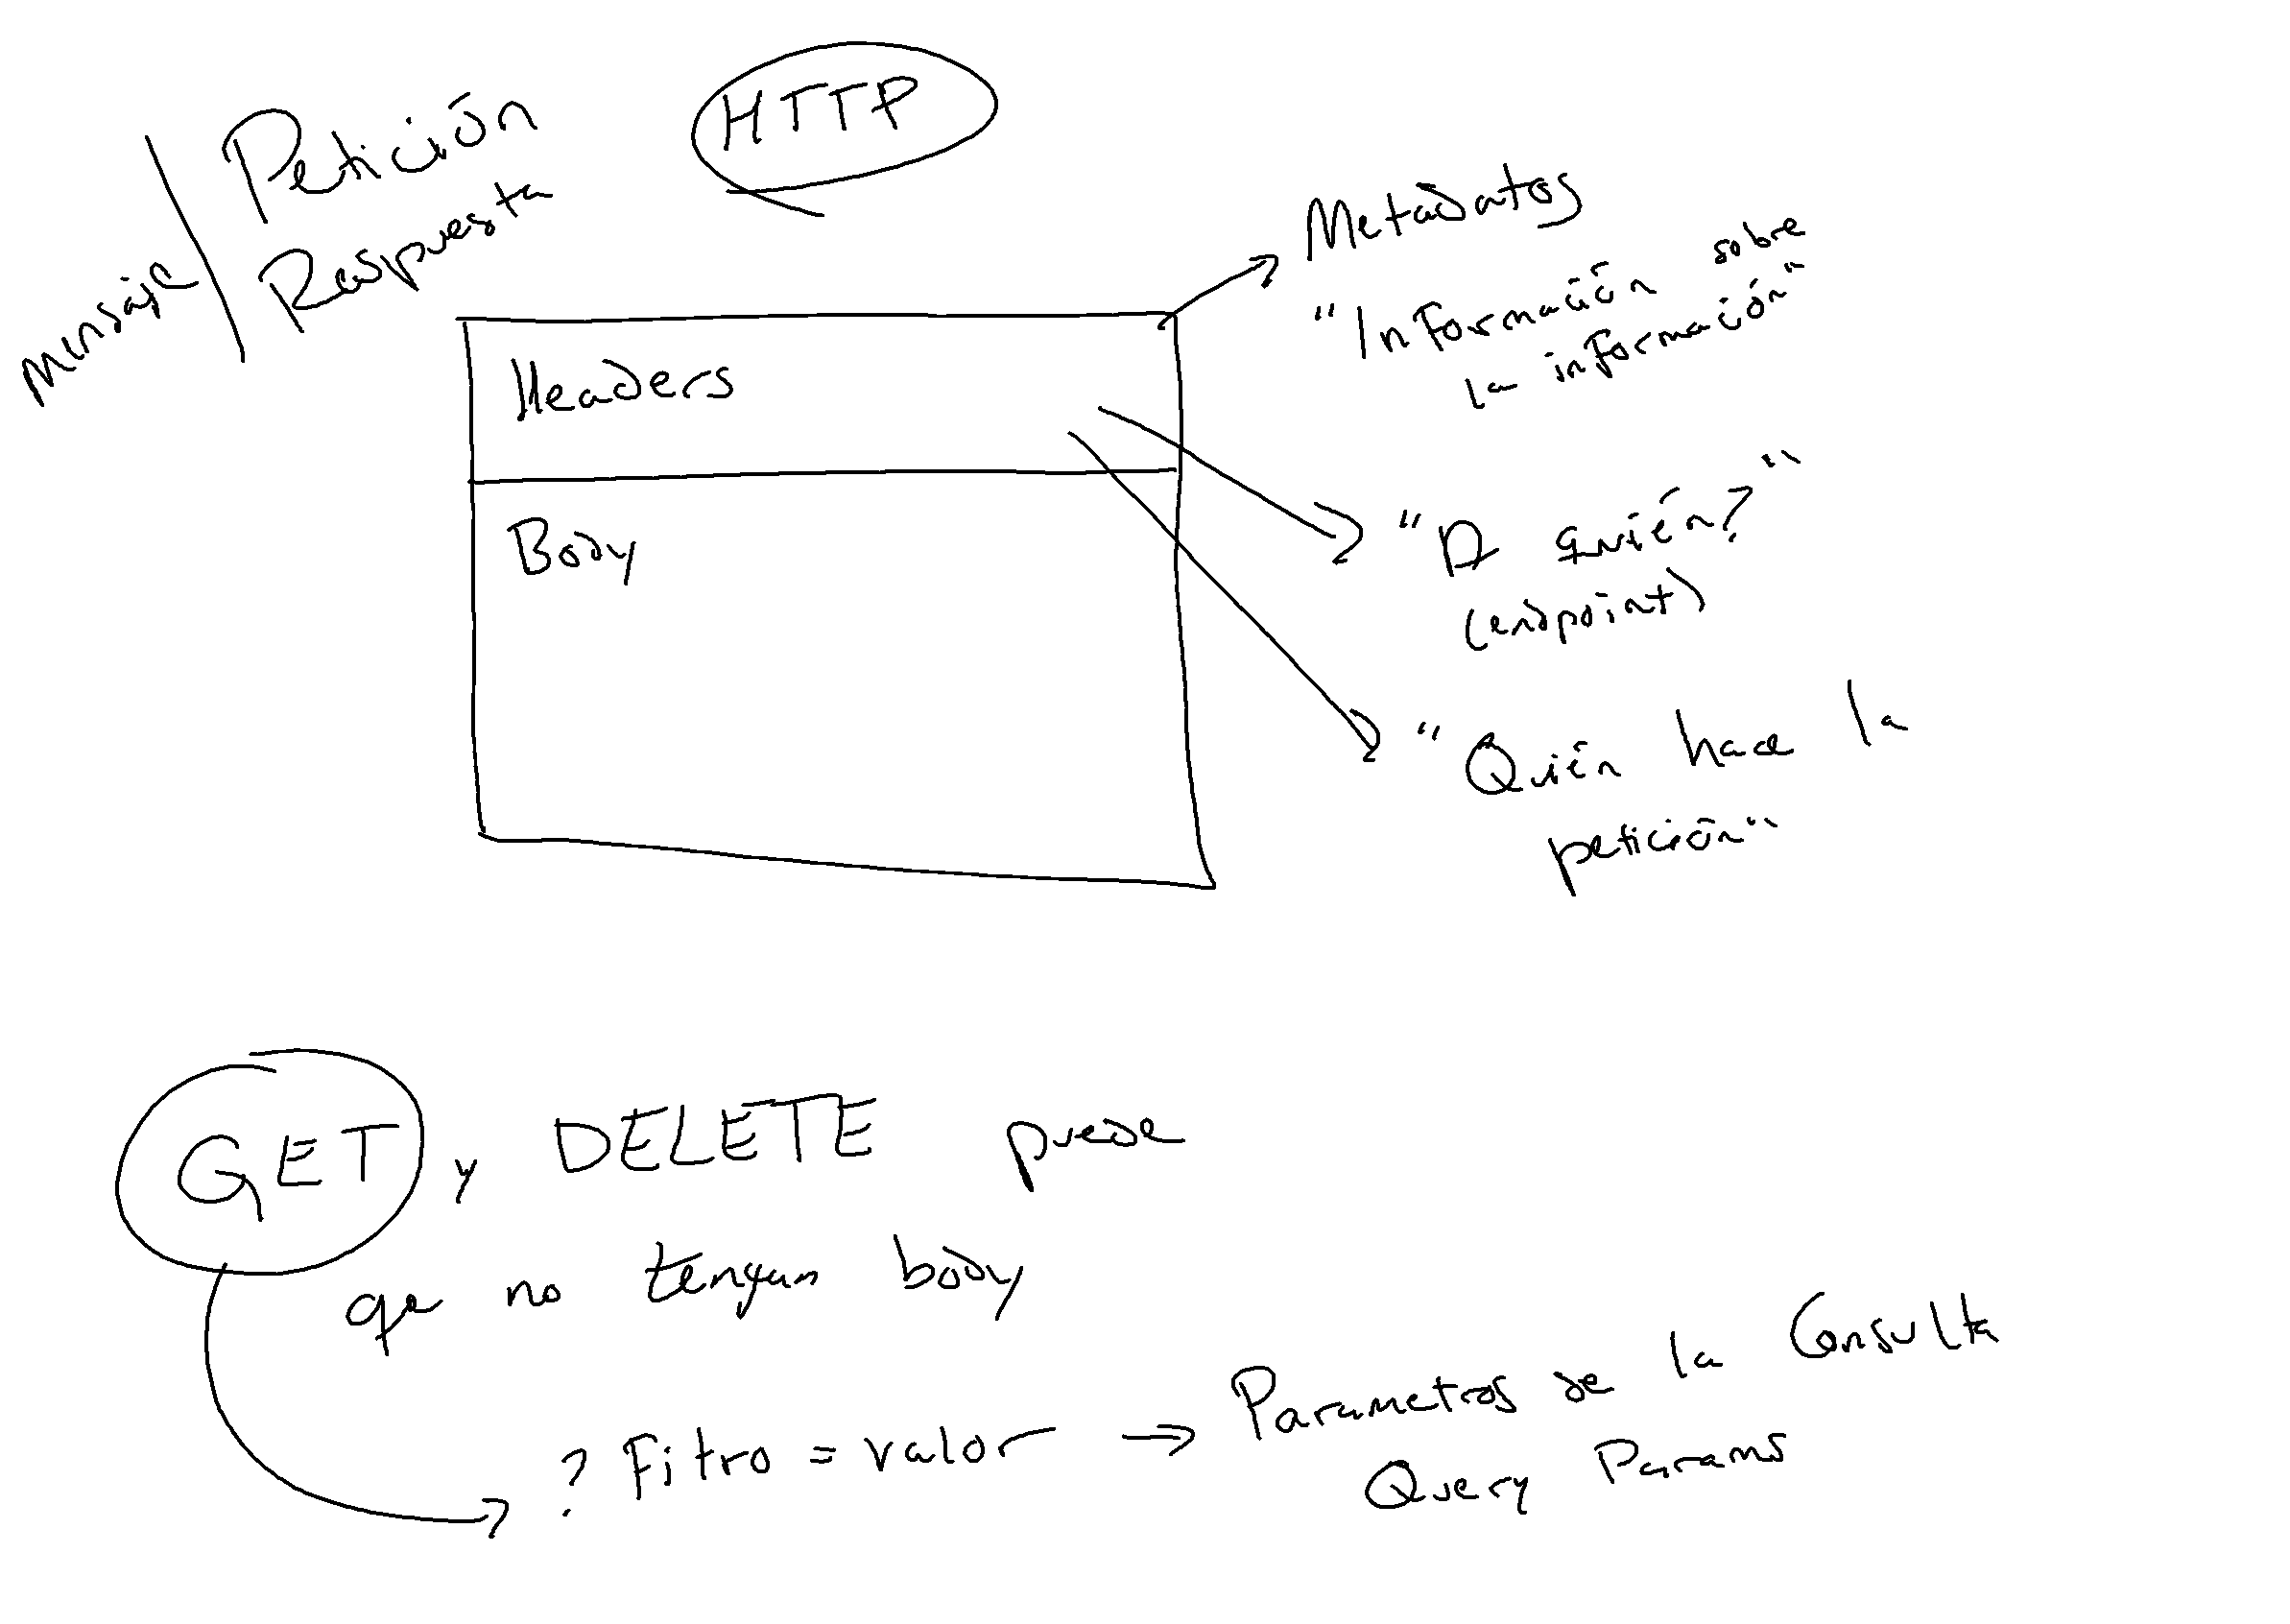 HTTP
Mensaje
Petición
Respuesta
Headers
Body
Metadatos
"Información sobre
la información"
"A quién?"
(endpoint)
"Quién hace la
petición"
GET y DELETE puede
que no tengan body
? Fitro = valor → Parametros de la Consulta
Query Params